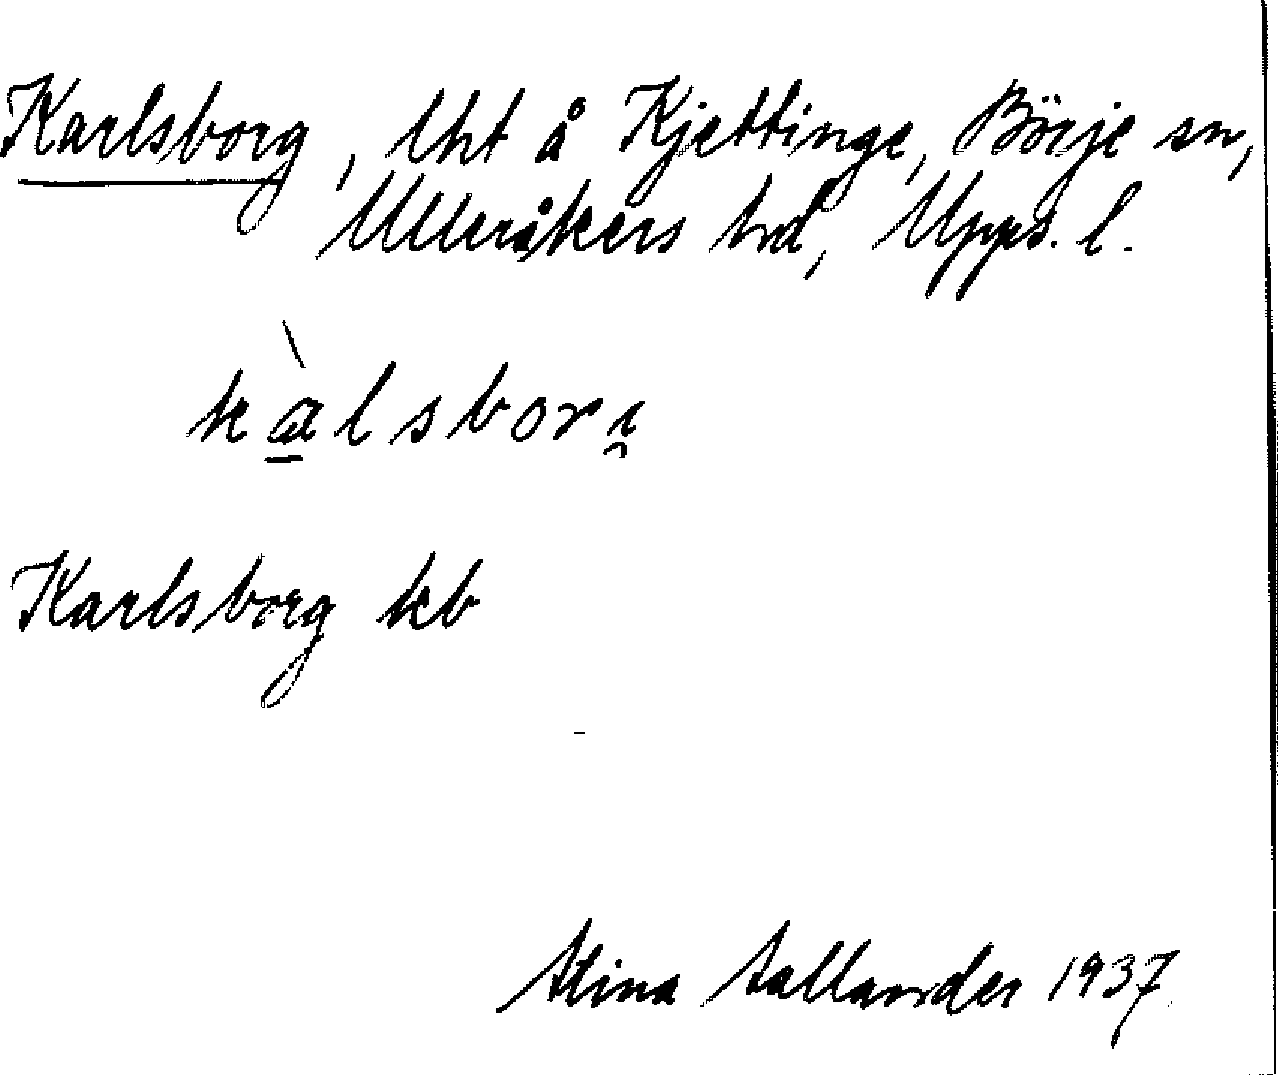 Karlsborg, lht å Kjettinge, Börje sn,
Ulleråkers hd, Upps. l.
kàlsborı̯
Karlsborg kb
Stina Sallander 1937